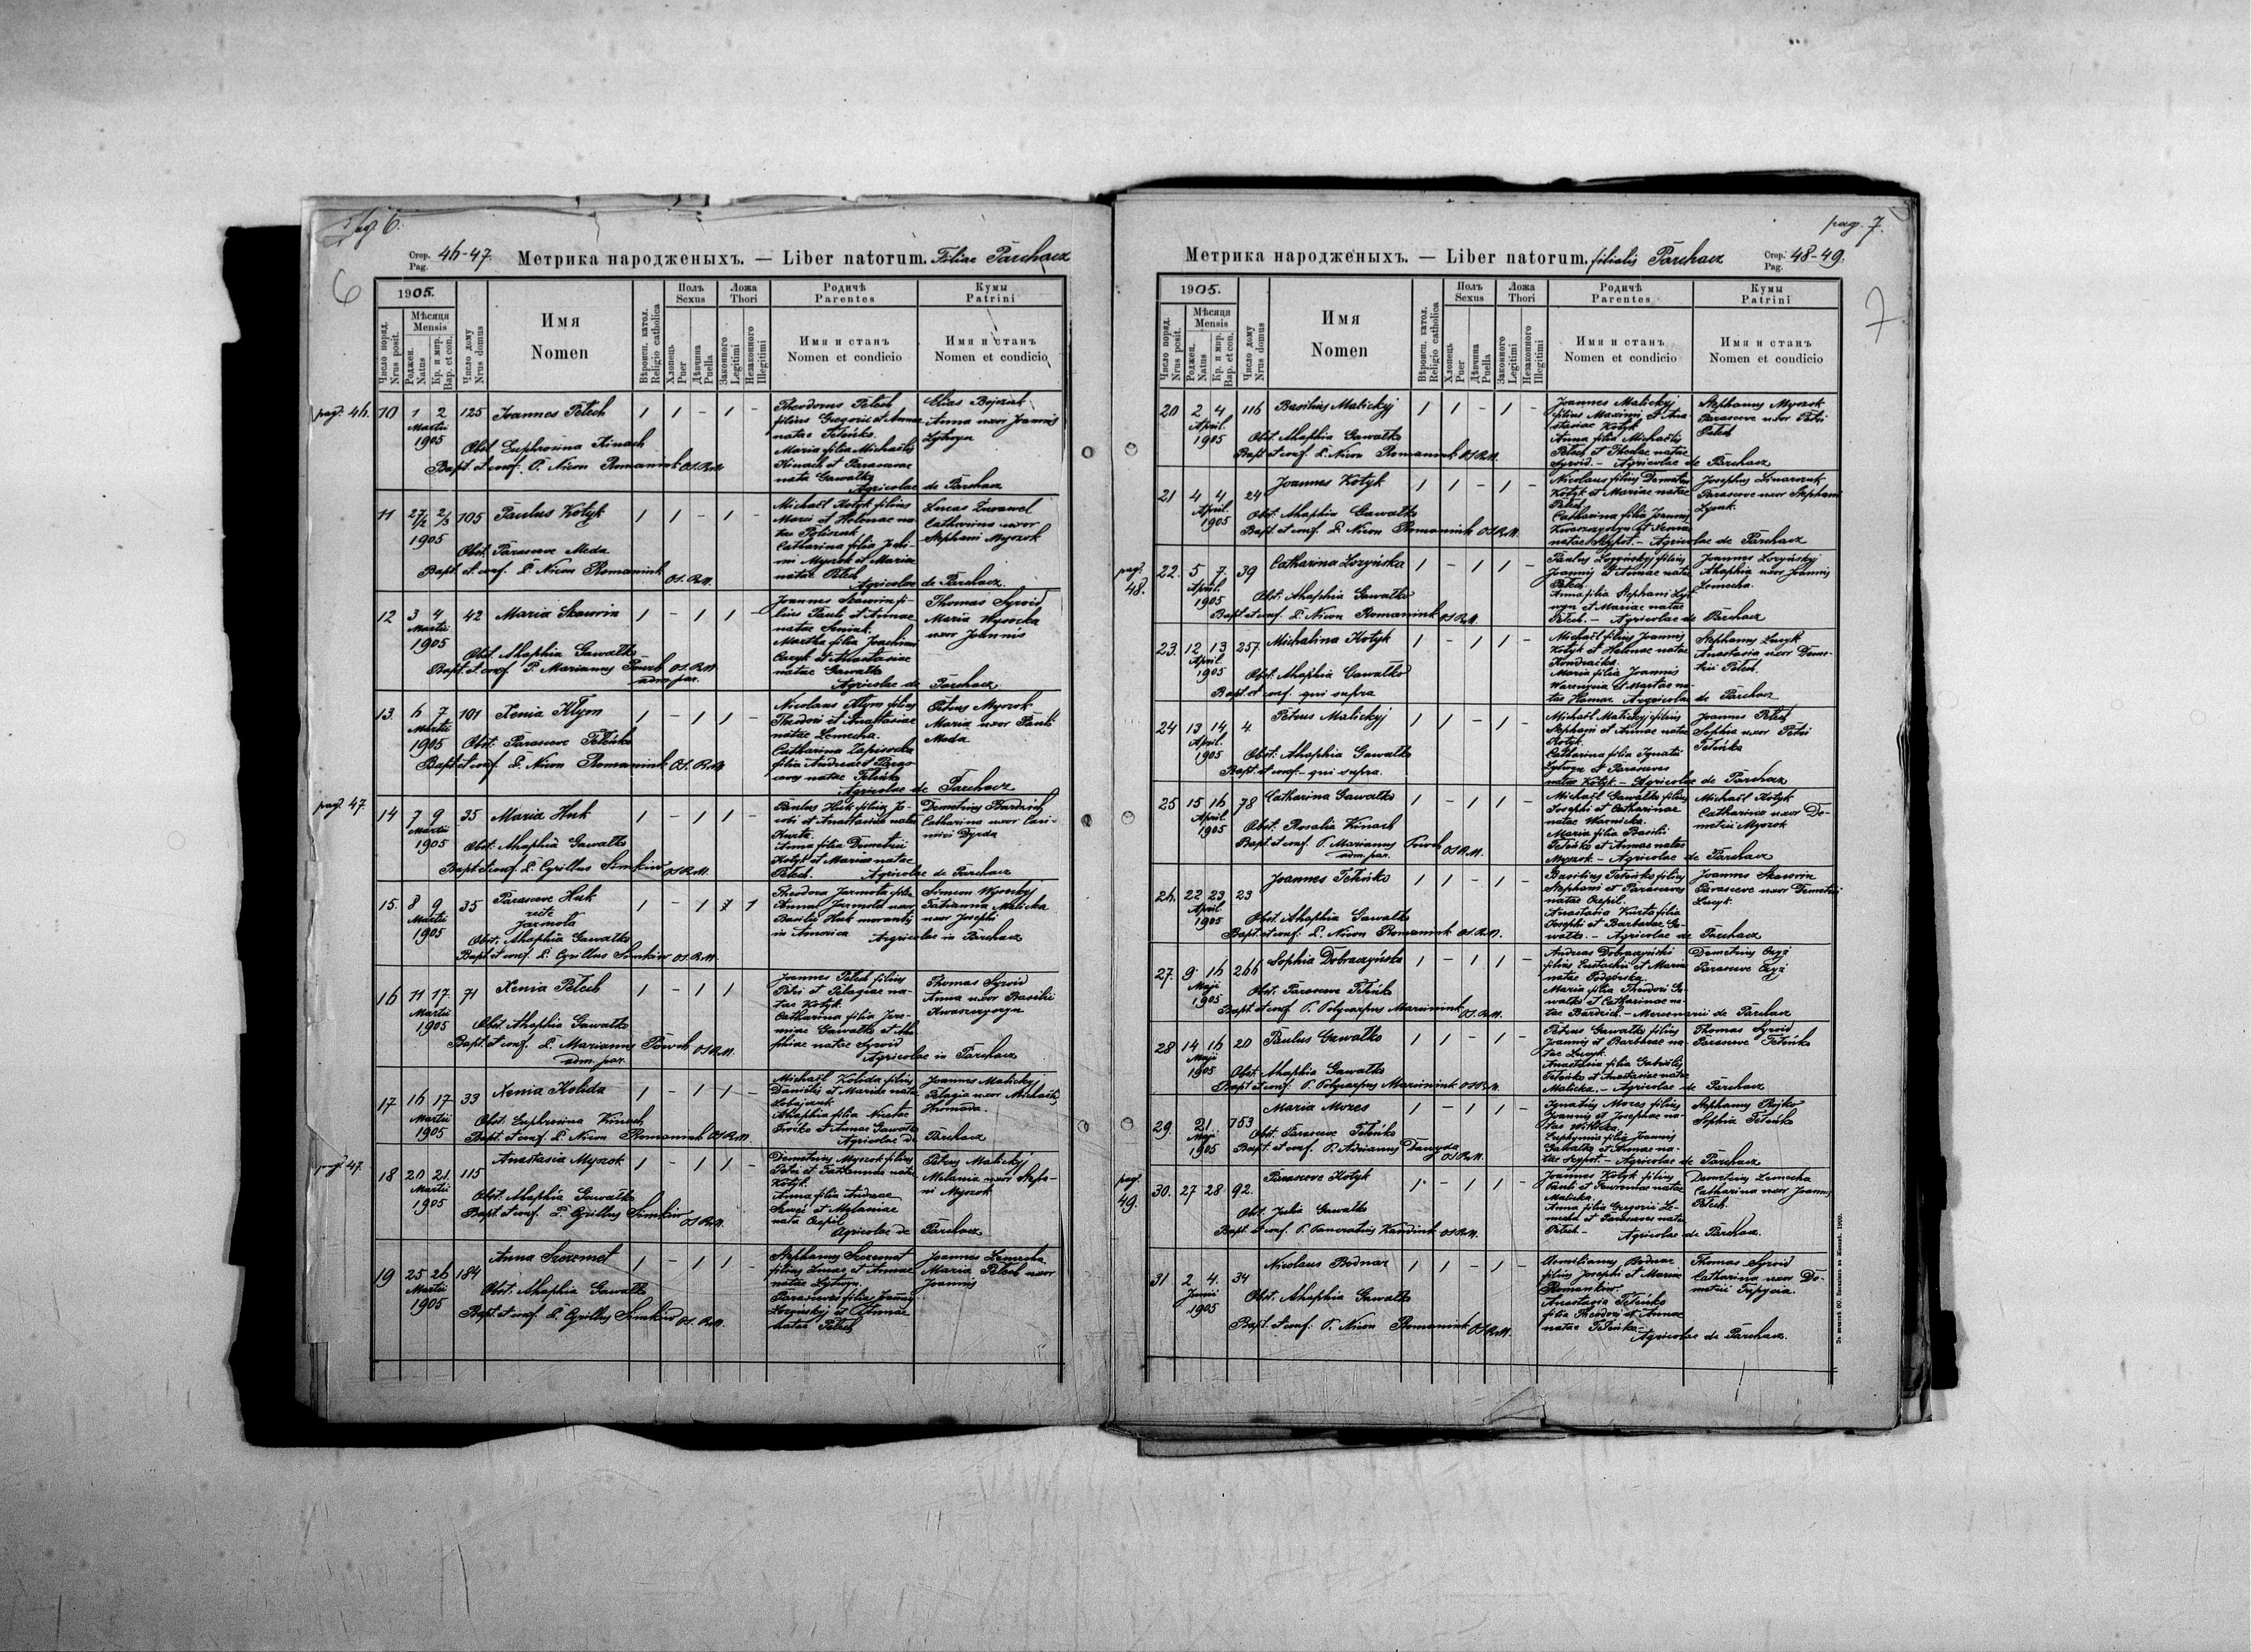 pag. 6.
6
Стор. Pag. 46-47. Метрика народженыхъ. — Liber natorum. Filiae Parchacz
1905.
Число поряд. Nrus posit.
Мѣсяця Mensis
Роджен. Natus
Кр. и мир. Bap. et con.
Число дому Nrus domus
Имя
Nomen
Вѣроисп. катол. Religio catholica
Полъ Sexus
Хлопець Puer
Дѣвчина Puella
Ложа Thori
Законного Legitimi
Незаконного Illegitimi
Родичѣ Parentes
Имя и станъ Nomen et condicio
Кумы Patrini
Имя и станъ Nomen et condicio
pag. 46.
10 1 2 Martii 1905 125 Joannes Petech 1 1 - 1 -
Obst. Euphrosina Kinach
Bapt. et conf. P. Nicon Romaniuk OSBM
Theodorus Petech
filius Gregorii et Annae
natae Teteńko.
Maria filia Michaëlis
Kinach et Parascevae
nata Gawałko
Agricolae de Parchacz
Elias
Anna uxor Joannis
Lytwyn
11 27/2 2/3 1905 105 Paulus Kotyk 1 1 - 1 -
Obst. Parasceve Meda
Bapt. et conf. P. Nicon Romaniuk OSBM.
Michaël Kotyk filius
et Helenae na-
tae
Catharina filia
Myszok et Maria
natae Petech
Agricolae de Parchacz
Lucas Zurawel
Catharina uxor
Stephani Myszok
12 3 4 Martii 1905 42 Maria Skawrin 1 - 1 1 -
Obst. Ahaphia Gawałko
Bapt. et conf. P. Marianus Powch OSBM
adm. par.
Joannes Skawrin fi-
lius Pauli et Annae
natae
Martha filia Joachimi
et Anastasiae
natae Gawałko
Agricolae de Parchacz
Thomas Syroid
Maria Wysocka
uxor Joannis
13. 6 7 Martii 1905 101 Xenia Klym 1 - 1 1 -
Obst. Parasceve Teteńko
Bapt. et conf. P. Nicon Romaniuk OSBM
Nicolaus Klym filius
Theodori et Anastasiae
natae Lemecha.
Catharina
filia Andreae et Paras-
cevy natae Teteńko
Agricolae de Parchacz
Petrus Myszok
Maria uxor Pauli
Meda
pag. 47
14 7 9 Martii 1905 35 Maria Huk 1 - 1 1 -
Obst. Ahaphia Gawałko
Bapt. et conf. P. Cyrillus Simkiw OSBM.
Paulus Huk filius Ja-
cobi et Anastasiae natae
Kurta.
Anna filia Demetrii
Kotyk et Mariae natae
Petech. Agricolae de Parchacz
Demetrius Bardzich
Catharina uxor Casi-
miri Dyrda
15. 8 9 Martii 1905 35 Parasceve Huk 1 - 1 7 1
recte
Jarmola
Obst. Ahaphia Gawałko
Bapt. et conf. P. Cyrillus Simkiw OSBM.
Theodora Jarmola filia
Annae Jarmola uxor
Basilii Huk morantis
in America Agricolae in Parchacz
Simeon Wysockyj
Tatianna Malicka
uxor Josephi
16 11 17. Martii 1905 71 Xenia Petech 1 - 1 1
Obst. Ahaphia Gawałko
Bapt. et conf. P. Marianus Powch OSBM.
adm. par.
Joannes Petech filius
Petri et Pelagiae na-
tae Kotyk
Catharina filia Jere-
miae Gawałko et Aha-
phiae natae Syroid
Agricolae in Parchacz
Thomas Syroid
Anna uxor Basilii
17 16 17 Martii 1905 33 Xenia Kolida 1 - 1 1 -
Obst. Euphrosina Kinach
Bapt. et conf. P. Nicon Romaniuk OSBM
Michaël Kolida filius
Danielis et Mariae natae
Ahaphia filia Nicetae
et Annae Gawałko
Agricolae de Parchacz
Joannes Malickyj
Pelagia uxor Michaëlis
Hromada.
pag. 47.
18 20 21. Martii 1905 115 Anastasia Myszok 1 - 1 1 -
Obst. Ahaphia Gawałko
Bapt. et conf. P. Cyrillus Simkiw OSBM.
Demetrius Myszok filius
Petri et natae
Kotyk.
Anna filia Andreae
et Melaniae
nata Czepil.
Agricolae de Parchacz
Petrus Malickyj
Melania uxor Stepha-
ni Myszok
19 25 26 Martii 1905 184 Anna Szeremet 1 - 1 1 -
Obst. Ahaphia Gawałko
Bapt. et conf. P. Cyrillus Simkiw OSBM.
Stephanus Szeremet
filius Lucae et Annae
natae Lytwyn.
Parasceves filia Joannis
Lozynskyj et Annae
natae Petech
Joannes Lemecha
Maria Petech uxor
Joannis
pag. 7.
7
Метрика народженыхъ. — Liber natorum. filialis Parchacz Стор. Pag. 48-49.
1905.
Число поряд. Nrus posit.
Мѣсяця Mensis
Роджен. Natus
Кр. и мир. Bap. et con.
Число дому Nrus domus
Имя
Nomen
Вѣроисп. катол. Religio catholica
Полъ Sexus
Хлопець Puer
Дѣвчина Puella
Ложа Thori
Законного Legitimi
Незаконного Illegitimi
Родичѣ Parentes
Имя и станъ Nomen et condicio
Кумы Patrini
Имя и станъ Nomen et condicio
20 2 4 April. 1905 116 Basilius Malickyj 1 1 - 1 -
Obst. Ahaphia Gawałko
Bapt. et conf. P. Nicon Romaniuk OSBM.
Joannes Malickyj
filius Maximi et Ana-
stasiae Kotyk
Anna filia Michaëlis
Petech et Theclae natae
Syroid. - Agricolae de Parchacz
Stephanus Myszok
Parasceve uxor Petri
Petech
21 4 4 April. 1905 24 Joannes Kotyk 1 1 - 1 -
Obst. Ahaphia Gawałko
Bapt. et conf. P. Nicon Romaniuk OSBM.
Nicolaus filius Demetrii
Kotyk et Mariae natae
Petech
Catharina filia Joannis
et Xeniae
natae Skypot. - Agricolae de Parchacz
Josephus
Parasceve uxor Stephani
pag. 48.
22. 5 7. April. 1905 39 Catharina Łozyńska 1 - 1 1 -
Obst. Ahaphia Gawałko
Bapt. et conf. P. Nicon Romaniuk OSBM.
Paulus Łozyńskyj filius
Joannis et Annae natae
Petech.
Anna filia Stephani Lyt-
wyn et Mariae natae
Petech. - Agricolae de Parchacz
Joannes Łozyńskyj
Ahaphia uxor Joannis
Lemecha.
23. 12 13 April. 1905 257 Michalina Kotyk 1 - 1 1 -
Obst. Ahaphia Gawałko
Bapt. et conf. qui supra
Michaël filius Joannis
Kotyk et Helenae natae
Maria filia Joannis
et Martae na-
tae Hamar. Agricolae de Parchacz
Stephanus Lucyk
Anastasia uxor Deme-
trii Petech.
24 13 14 April. 1905 4. Petrus Malickyj 1 1 - 1 -
Obst. Ahaphia Gawałko
Bapt. et conf. - qui supra.
Michaël Malickyj filius
Stephani et Annae natae
Kotyk.
Catharina filia Ignatii
Lytwyn et Parasceves
natae Kotyk - Agricolae de Parchacz
Joannes Petech
Sophia uxor Petri
Teteńko
25 15 16 April. 1905 78 Catharina Gawałko 1 - 1 1 -
Obst. Rosalia Kinach
Bapt. et conf. P. Marianus Powch OSBM.
adm. par.
Michaël Gawałko filius
Josephi et Catharinae
natae Warnicka.
Maria filia Basilii
Teteńko et Annae natae
Myszok. - Agricolae de Parchacz
Michaël Kotyk
Catharina uxor De-
metrii Myszok
26. 22 23 April. 1905 23 Joannes Teteńko 1 1 - 1 -
Obst. Ahaphia Gawałko
Bapt. et conf. P. Nicon Romaniuk OSBM.
Basilius Teteńko filius
Stephani et Parasceves
natae Czepil.
Anastasia Kurta filia
Josephi et Barbarae Ga-
wałko. - Agricolae de Parchacz
Joannes Skawrin
Parasceve uxor Demetrii
Lucyk.
27. 9 16 Maji 1905 266 Sophia Dobraczyńska 1 - 1 1 -
Obst. Parasceve Teteńko
Bapt. et conf. P. Polycarpus Marciniuk OSBM.
Andreas Dobraczyński
filius Eustachii et Maria
natae Podgórska.
Maria filia Theodori Ga-
wałko et Catharinae na-
tae Bardzich - Mercenarii de Parchacz
Demetrius Czyż
Parasceve Czyż
28 14 16 Maji 1905 20 Paulus Gawałko 1 1 - 1 -
Obst. Ahaphia Gawałko
Bapt. et conf. P. Polycarpus Marciniuk OSBM.
Petrus Gawałko filius
Joannis et Barbarae na-
tae Lucyk.
Anastasia filia Gabriëlis
Teteńko et Anastasiae natae
Malicka. - Agricolae de Parchacz
Thomas Syroid
Parasceve Teteńko
29. 21. Maji 1905 753 Maria Mozes 1 - 1 1 -
Obst. Parasceve Teteńko
Bapt. et conf. P. Adrianus Dawyda OSBM.
Ignatius Mozes filius
Joannis et Josephae na-
tae Witocka.
Euphymia filia Joannis
Gawałko et Annae na-
tae Skypot. - Agricolae de Parchacz
Stephanus Bojko
Sophia Teteńko
pag. 49.
30. 27 28 92. Parasceve Kotyk 1. - 1 1 -
Obst. Julia Gawałko
Bapt. et conf. P. Pancratius Kandiuk OSBM.
Joannes Kotyk filius
Pauli et natae
Malicka.
Anna filia Gregorii Le-
mecha et Parasceves natae
Petech - Agricolae de Parchacz.
Demetrius Lemecha
Catharina uxor Joannis
Petech.
31 2 4. Junii 1905 34 Nicolaus Bodnar 1 1 - 1 -
Obst. Ahaphia Gawałko
Bapt. et conf. P. Nicon Romaniuk OSBM.
Aemilianus Bodnar
filius Josephi et Mariae
Romankiw.
Anastasia Teteńko
filia Theodori et Annae
natae Teteńko -
Agricolae de Parchacz.
Thomas Syroid
Catharina uxor De-
metrii